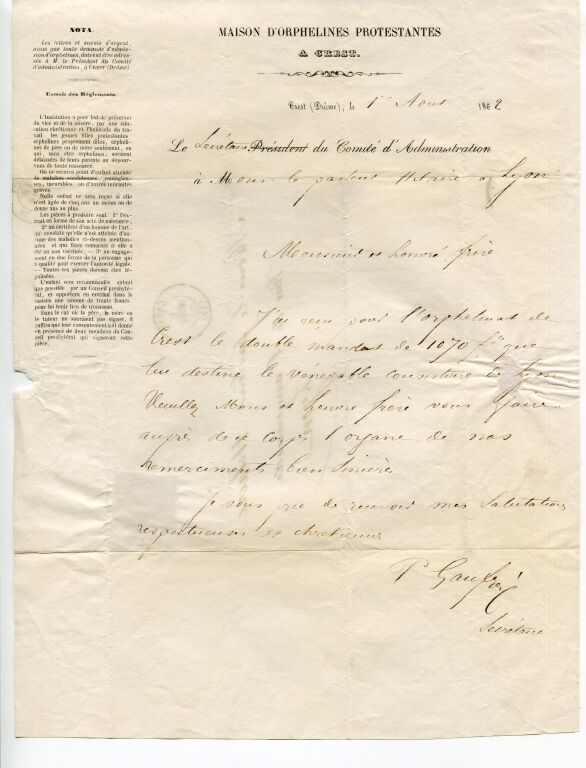 NOTA
Les lettres et envois d'argent,
ainsi que toute demande d'admis-
sion d'orphelines, doivent être adres-
sés à M. le Président du Comité
d'administration, à CREST (Drôme)
Extrait des Règlements.
L'Institution a pour but de préserver
du vice et de la misère, par une édu-
cation chrétienne et l'habitude du tra-
vail les jeunes filles protestantes
orphelines proprement dites, orpheli-
nes de père ou de mère seulement, ou
qui, sans être orphelines, seraient
délaissées de leurs parents au dépour-
vues de toute ressource.
On ne recevra point d'enfant atteinte
de maladies scrofuleuses, contagieu-
ses, incurables ou d'autres infirmités
graves.
Nulle enfant ne sera reçue si elle
n'est âgée de cinq ans au moins ou de
douze ans au plus.
Les pièces à produire sont 1° l'ex-
trait en forme de son acte de naissance;
2° un certificat d'un homme de l'art,
qui constate qu'elle n'est atteinte d'au-
cune des maladies ci-dessus mention-
nées et qui fasse connaître si elle a
été ou non vaccinée; — 3° un engage-
ment en due forme de la personne qui
a qualité pour exercer l'autorité légale.
— Toutes ces pièces doivent être lé-
galisées.
L'enfant sera recommandée autant
que possible par un Conseil presbyté-
ral, et apportera en entrant dans la
maison une somme de trente francs
pour lui tenir lieu de trousseau.
Dans le cas où le père, la mère ou
le tuteur ne sauraient pas signer, il
suffira que leur consentement soit donné
en présence de deux membres du Con-
seil presbytéral qui signeront cette
pièce.
MAISON D'ORPHELINES PROTESTANTES
A CREST.
Crest (Drôme), le 1er Aout 1862
Le Secrétaire Président du Comité d'Administration
à Monsr le pasteur à Lyon
Monsieur et honoré frère
J'ai reçu pour l'orphelinat de
Crest le double mandat de 1070 f que
lui destine le venerable consistoire de Lyon
Veuillez Mons et honoré frère vous faire
auprès de ce corps l'organe de nos
remerciments bien sincères
Je vous prie de recevoir mes salutations
respectueuses et chretiennes
P
Secrétaire